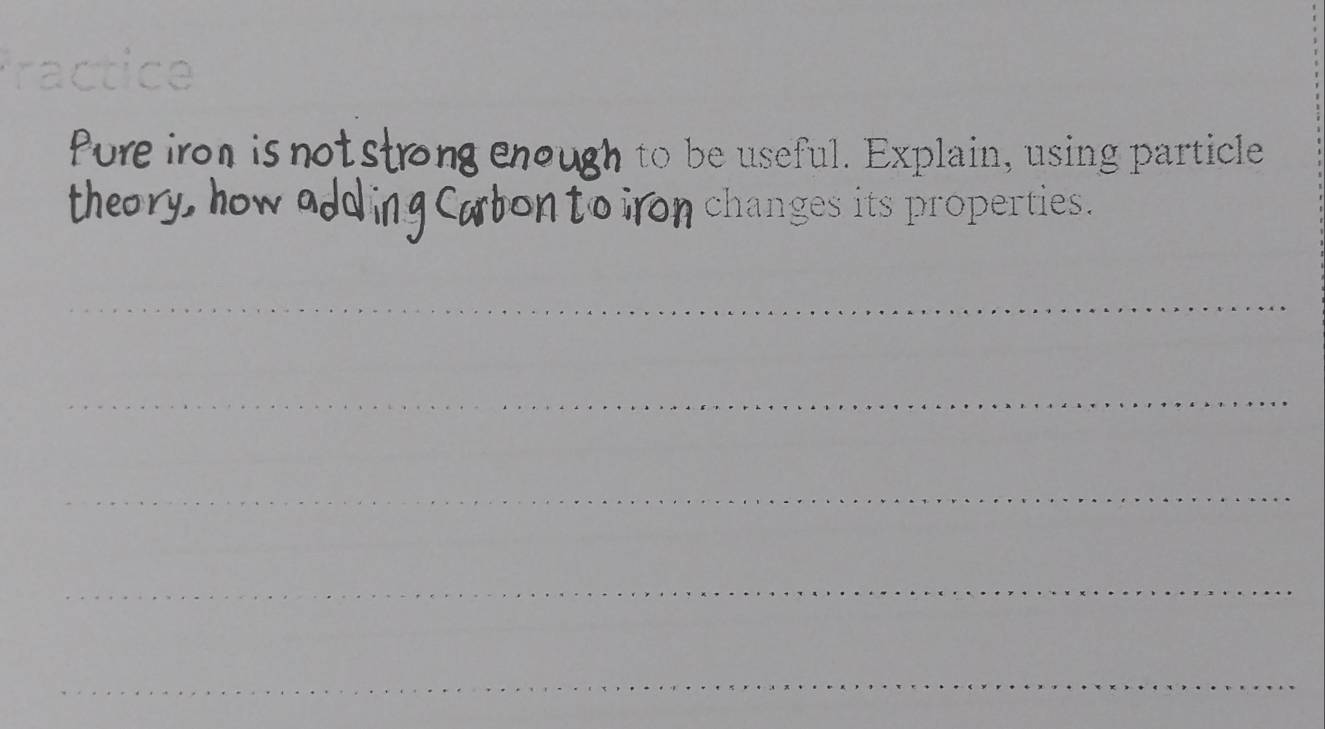 Practice
Pure iron is not strong enough to be useful. Explain, using particle
theory, how adding Carbon to iron changes its properties.